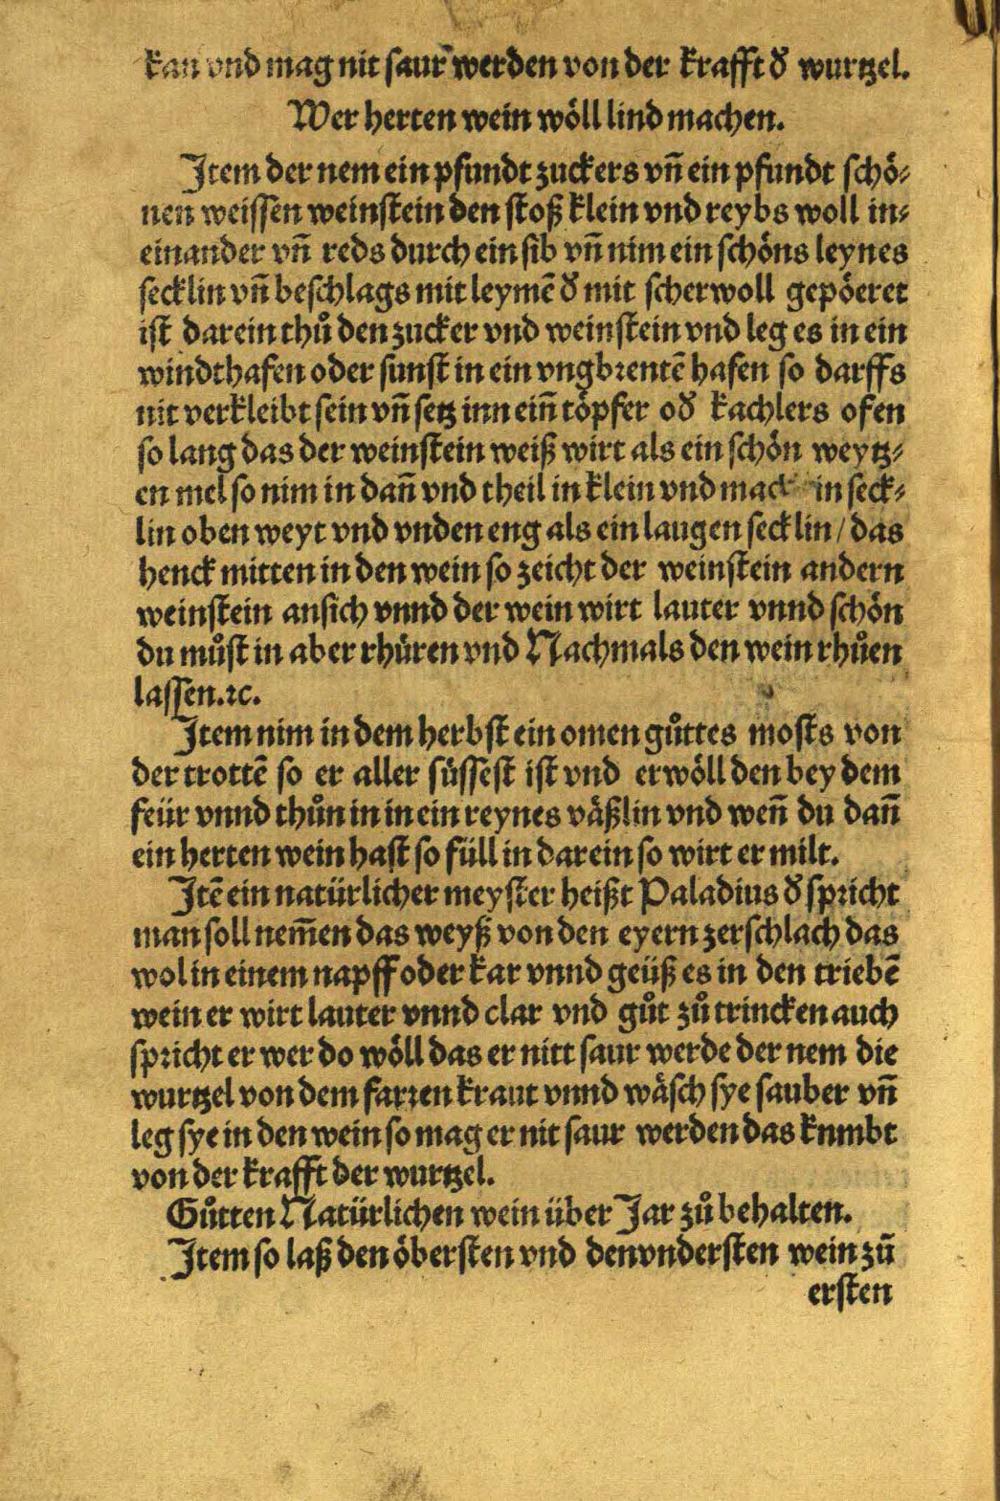 kan vnd mag nit saur werden von der krafft d̕ wurtzel.
Wer herten wein wöll lind machen.
Item der nem ein pfundt zuckers vñ ein pfundt schö⸗
nen weissen weinstein den stoß klein vnd reybs woll in⸗
einander vñ reds durch ein sib vñ nim ein schöns leynes
secklin vñ beschlags mit leymē d̕ mit scherwoll gepöeret
ist darein thů den zucker vnd weinstein vnd leg es in ein
windthafen oder sunst in ein vngbrentē hafen so darffs
nit verkleibt sein vñ setz inn eiñ töpfer od̕ kachlers ofen
so lang das der weinstein weiß wirt als ein schön weytz⸗
en mel so nim in dañ vnd theil in klein vnd mach in seck⸗
lin oben weyt vnd vnden eng als ein laugen secklin / das
henck mitten in den wein so zeicht der weinstein andern
weinstein ansich vnnd der wein wirt lauter vnnd schön
du můst in aber rhůren vnd Nachmals den wein rhůen
lassen.ꝛc.
Item nim in dem herbst ein omen gůttes mosts von
der trottē so er aller süssest ist vnd erwöll den bey dem
feür vnnd thůn in in ein reynes väßlin vnd weñ du dañ
ein herten wein hast so füll in darein so wirt er milt.
Itē ein natürlicher meyster heißt Paladius d̕ spricht
man soll nem̄en das weyß von den eyern zerschlach das
wol in einem napff oder kar vnnd geüß es in den triebē
wein er wirt lauter vnnd clar vnd gůt zů trincken auch
spricht er wer do wöll das er nitt saur werde der nem die
wurtzel von dem farren kraut vnnd wäsch sye sauber vñ
leg sye in den wein so mag er nit saur werden das knmbt
von der krafft der wurtzel.
Gůtten Natürlichen wein über Jar zů behalten.
Item so laß den öbersten vnd den vndersten wein zů
ersten